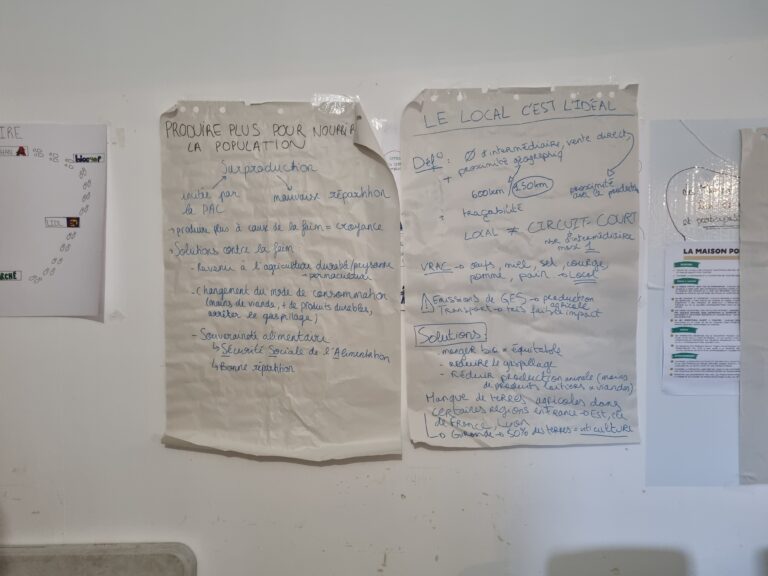 PRODUIRE PLUS POUR NOURRIR
LA POPULATION
Surproduction
incitée par
la PAC
mauvaise répartition
produire plus à cause de la faim = croyance
Solutions contre la faim :
- Revenir à l'agriculture durable/paysanne
permaculture
- changement du mode de consommation
(moins de viande, + de produits durables,
arrêter le gaspillage)
- Souveraineté alimentaire
↳ Sécurité Sociale de l'Alimentation
↳ Bonne répartition
LE LOCAL C'EST L'IDÉAL
Déf° : Ø d'intermédiaire, vente directe
+ proximité géographiq
600km
150km
proximité
avec le producteur
traçabilité
LOCAL ≠ CIRCUIT-COURT
d'intermédiaire
1
VRAC → œufs, miel, sel, courge
pomme, pain → Local
⚠ Emissions de GES → production
agricole
Transport → très faible impact
Solutions :
- manger bio + équitable
- réduire le gaspillage
- Réduire production animale (moins
de produits laitiers & viandes)
Manque de terres agricoles dans
certaines régions en France → Est, île
de France, Lyon
↳ Gironde → 50% des terres = viticulture
IRE
LIDL
RCHÉ
LA MAISON PO